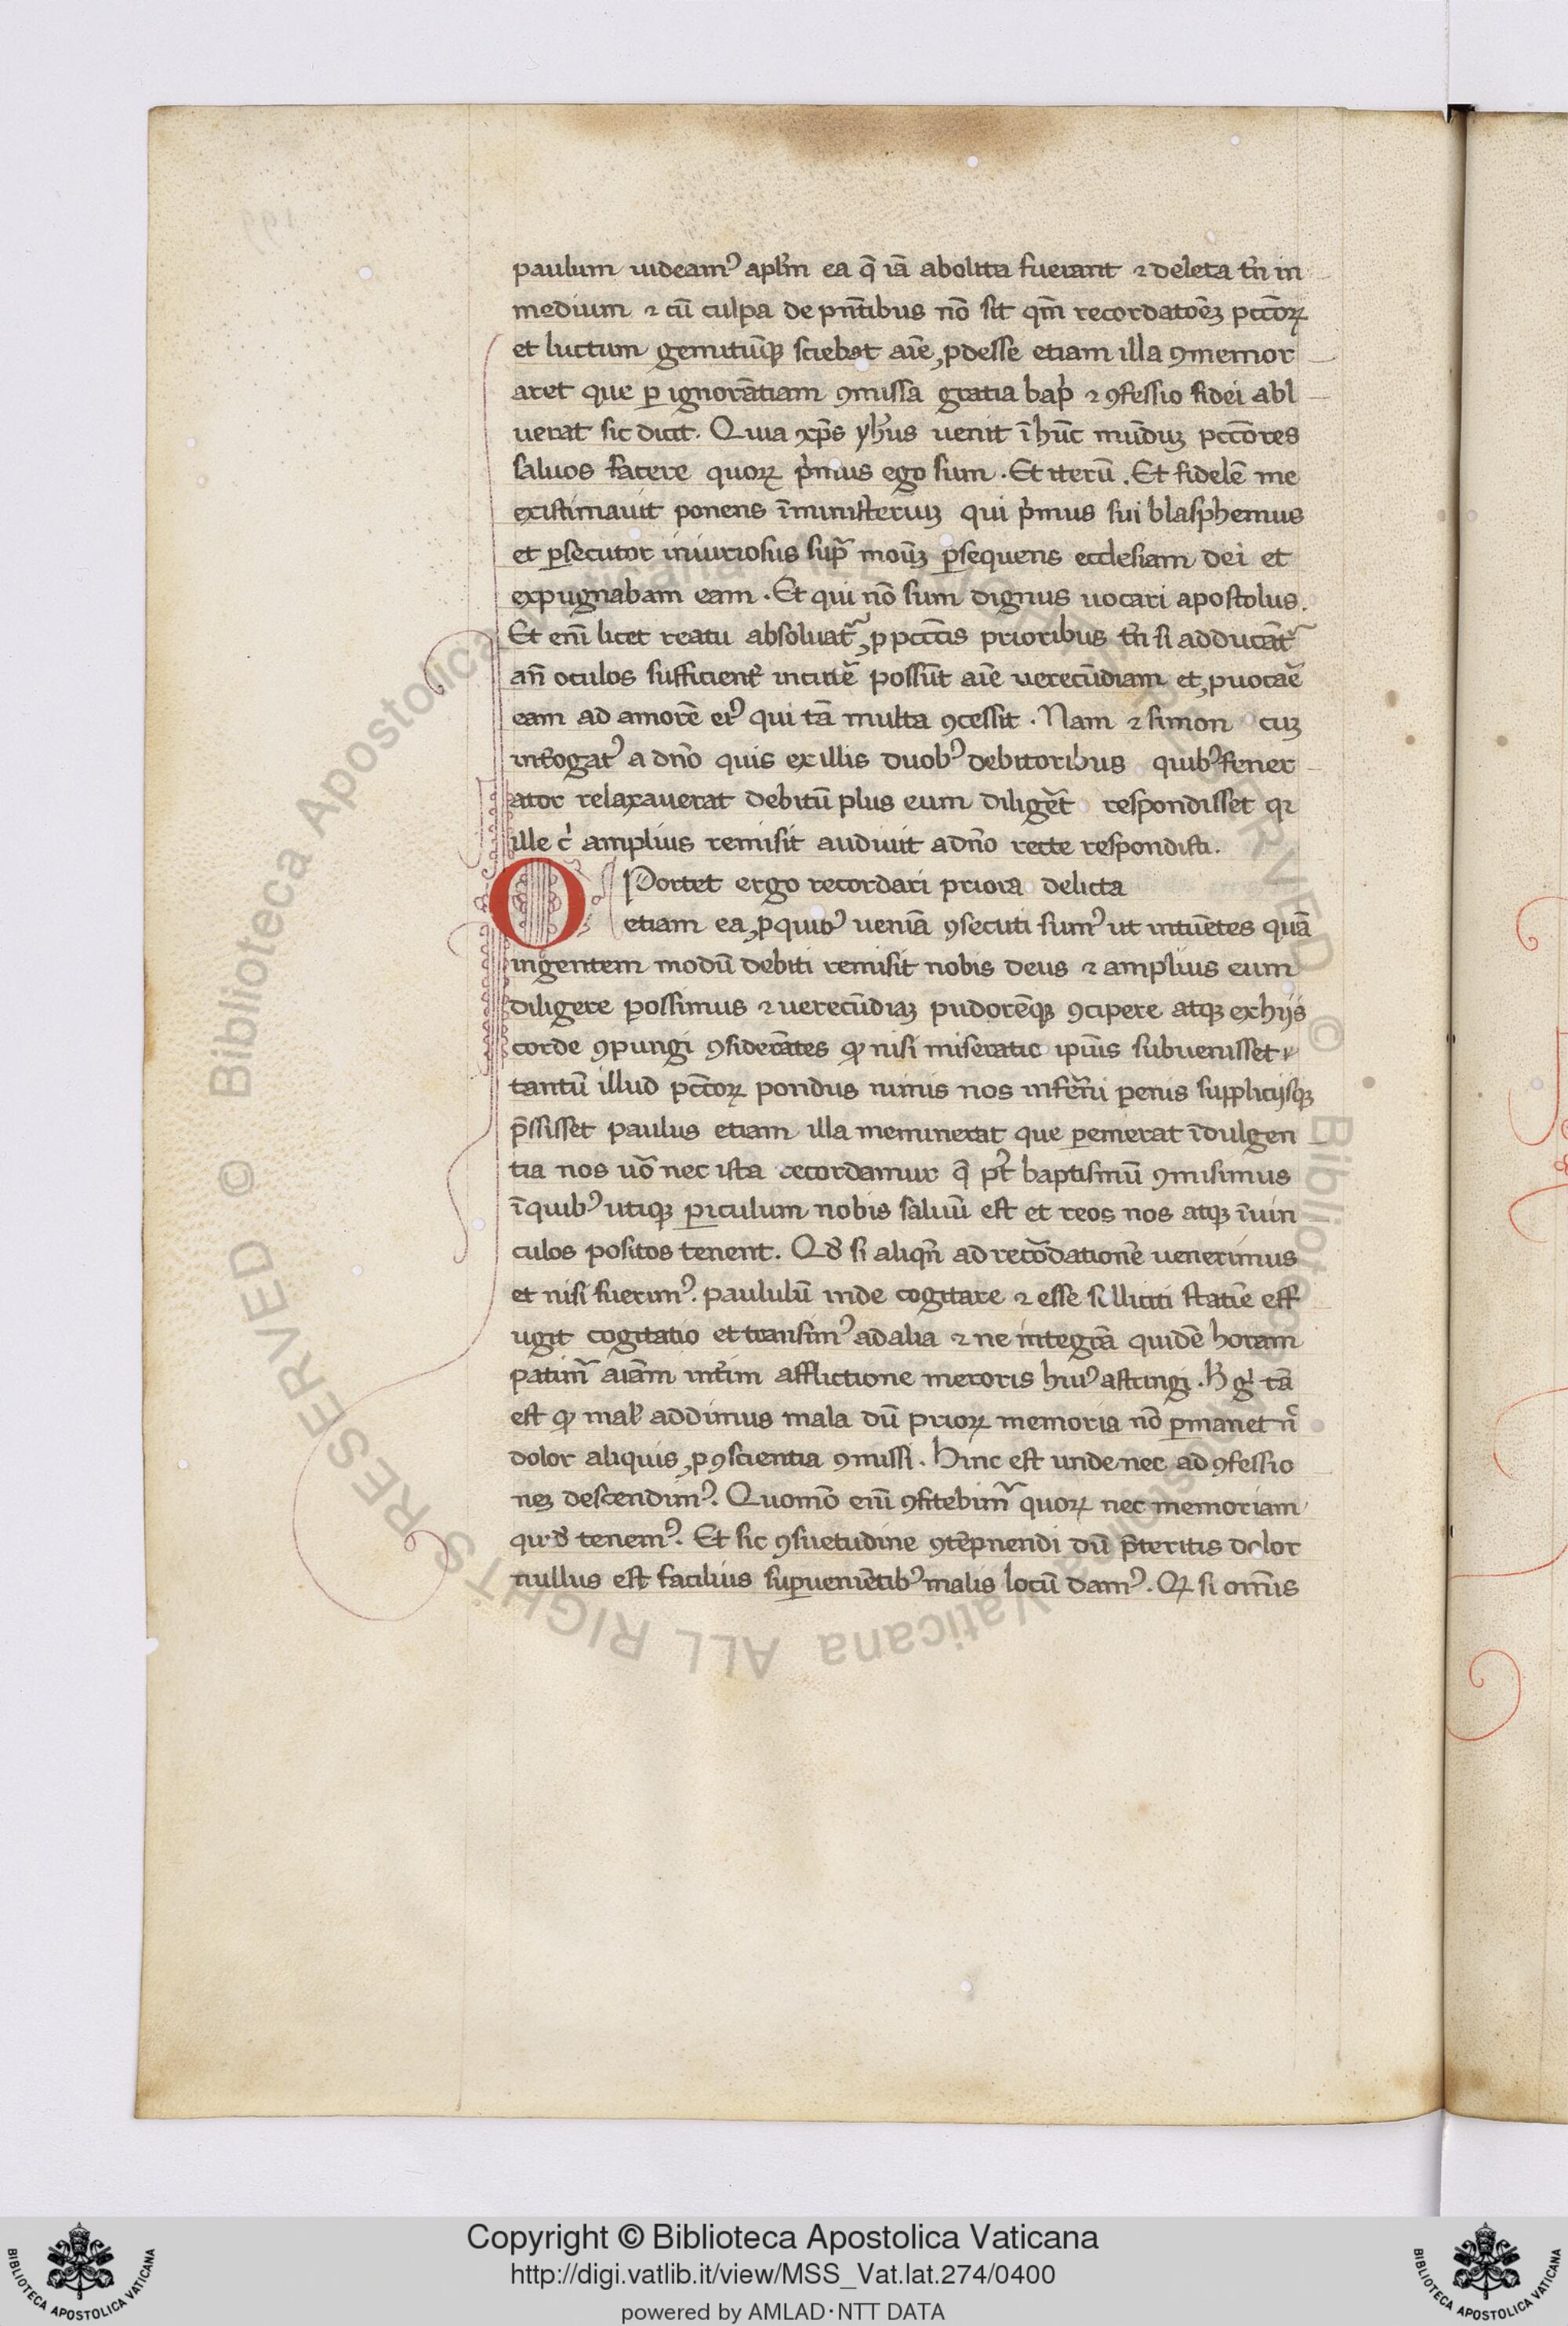 paulum uideamꝰ apl̃m ea q̃ iã abolita fuerant ⁊ deleta tñ in
medium ⁊ cũ culpa de pñtibus nõ sit qm̃ recordatoẽꝫ pcc̃oꝝ
et luctum gemitũqꝫ sciebat aĩe ꝓdesse etiam illa ꝯmemor
aret que ꝑ ignorãtiam ꝯmissa gratia bap̃ ⁊ ꝯfessio fidei abl
uerat sic dicit. Quia xp̃s yhũs uenit ĩ hũc mũduꝫ pcc̃ores
saluos facere quoꝝ pͥmus ego sum. Et iterũ. Et fidelẽ me
existimauit ponens ĩ ministeriuꝫ qui pͥmus fui blasphemus
et ꝑsecutor iniuriosus suꝑ moũꝫ ꝑsequens ecclesiam dei et
expugnabam eam. Et qui nõ sum dignus uocari apostolus.
Et eni᷉ licet reatu absoluat᷉ ꝓ pccc̃is prioribus tñ si adducãt᷉
añ oculos sufficient᷉ incutẽ possũt aĩe uerecũdiam et ꝓuocãe
eam ad amorẽ eiꝰ qui tã multa ꝯcessit. Nam ⁊ simon cuꝫ
int̃ogatꝰ a dño quis ex illis duobꝰ debitoribus quibꝰ fener
ator relaxauerat debitũ plus eum diliget᷉ respondisset qꝛ
ille cͥ amplius remisit audiuit a dño recte respondisti.
OPortet ergo recordari priora delicta
etiam ea ꝓ quibꝰ ueniã ꝯsecuti sumꝰ ut intuẽtes quã
ingentem modũ debiti remisit nobis deus ⁊ amplius eum
diligere possimus ⁊ uerecũdiaꝫ pudorẽqꝫ ꝯcipere atqꝫ ex hijs
corde ꝯpungi ꝯsiderãtes ꝙ nisi miseratio ipiũs subuenisset
tantũ illud pcc̃oꝝ pondus nimis nos inferñi penis suppliciisqꝫ
p̃ssisset paulus etiam illa meminerat que ꝑemerat ĩdulgen
tia nos uõ nec ista recordamur q̃ pt᷉ baptismũ ꝯmisimus
ĩ quibꝰ utiqꝫ ꝑiculum nobis saluũ est et reos nos atqꝫ ĩ uin
culos positos tenent. Qđ si aliqñ ad recõdationẽ uenerimus
et nisi fuerimꝰ. paululũ inde cogitare ⁊ esse solliciti statiẽ eff
ugit cogitatio et transimꝰ ad alia ⁊ ne integrã quidẽ horam
patim᷉ aiãm int̃im afflictione meroris huiꝰ astringi. H̃ gͥ tã
est ꝙ malꝰ addimus mala dũ prioꝝ memoria nõ ꝑmanet ñ
dolor aliquis ꝓ ꝯscientia ꝯmissi. Hinc est unde nec ad ꝯfessio
neꝫ descendimꝰ. Quomõ eni᷉ ꝯfitebim᷉ quoꝝ nec memoriam
quid tenemꝰ. Et sic ꝯsuetudine ꝯtẽpnendi dũ p̃teritis dolor
nullus est facilius suꝑueniẽtibꝰ malis locũ damꝰ. Qꝛ si omĩs
Copyright © Biblioteca Apostolica Vaticana
http://digi.vatlib.it/view/MSS_Vat.lat.274/0400
powered by AMLAD·NTT DATA